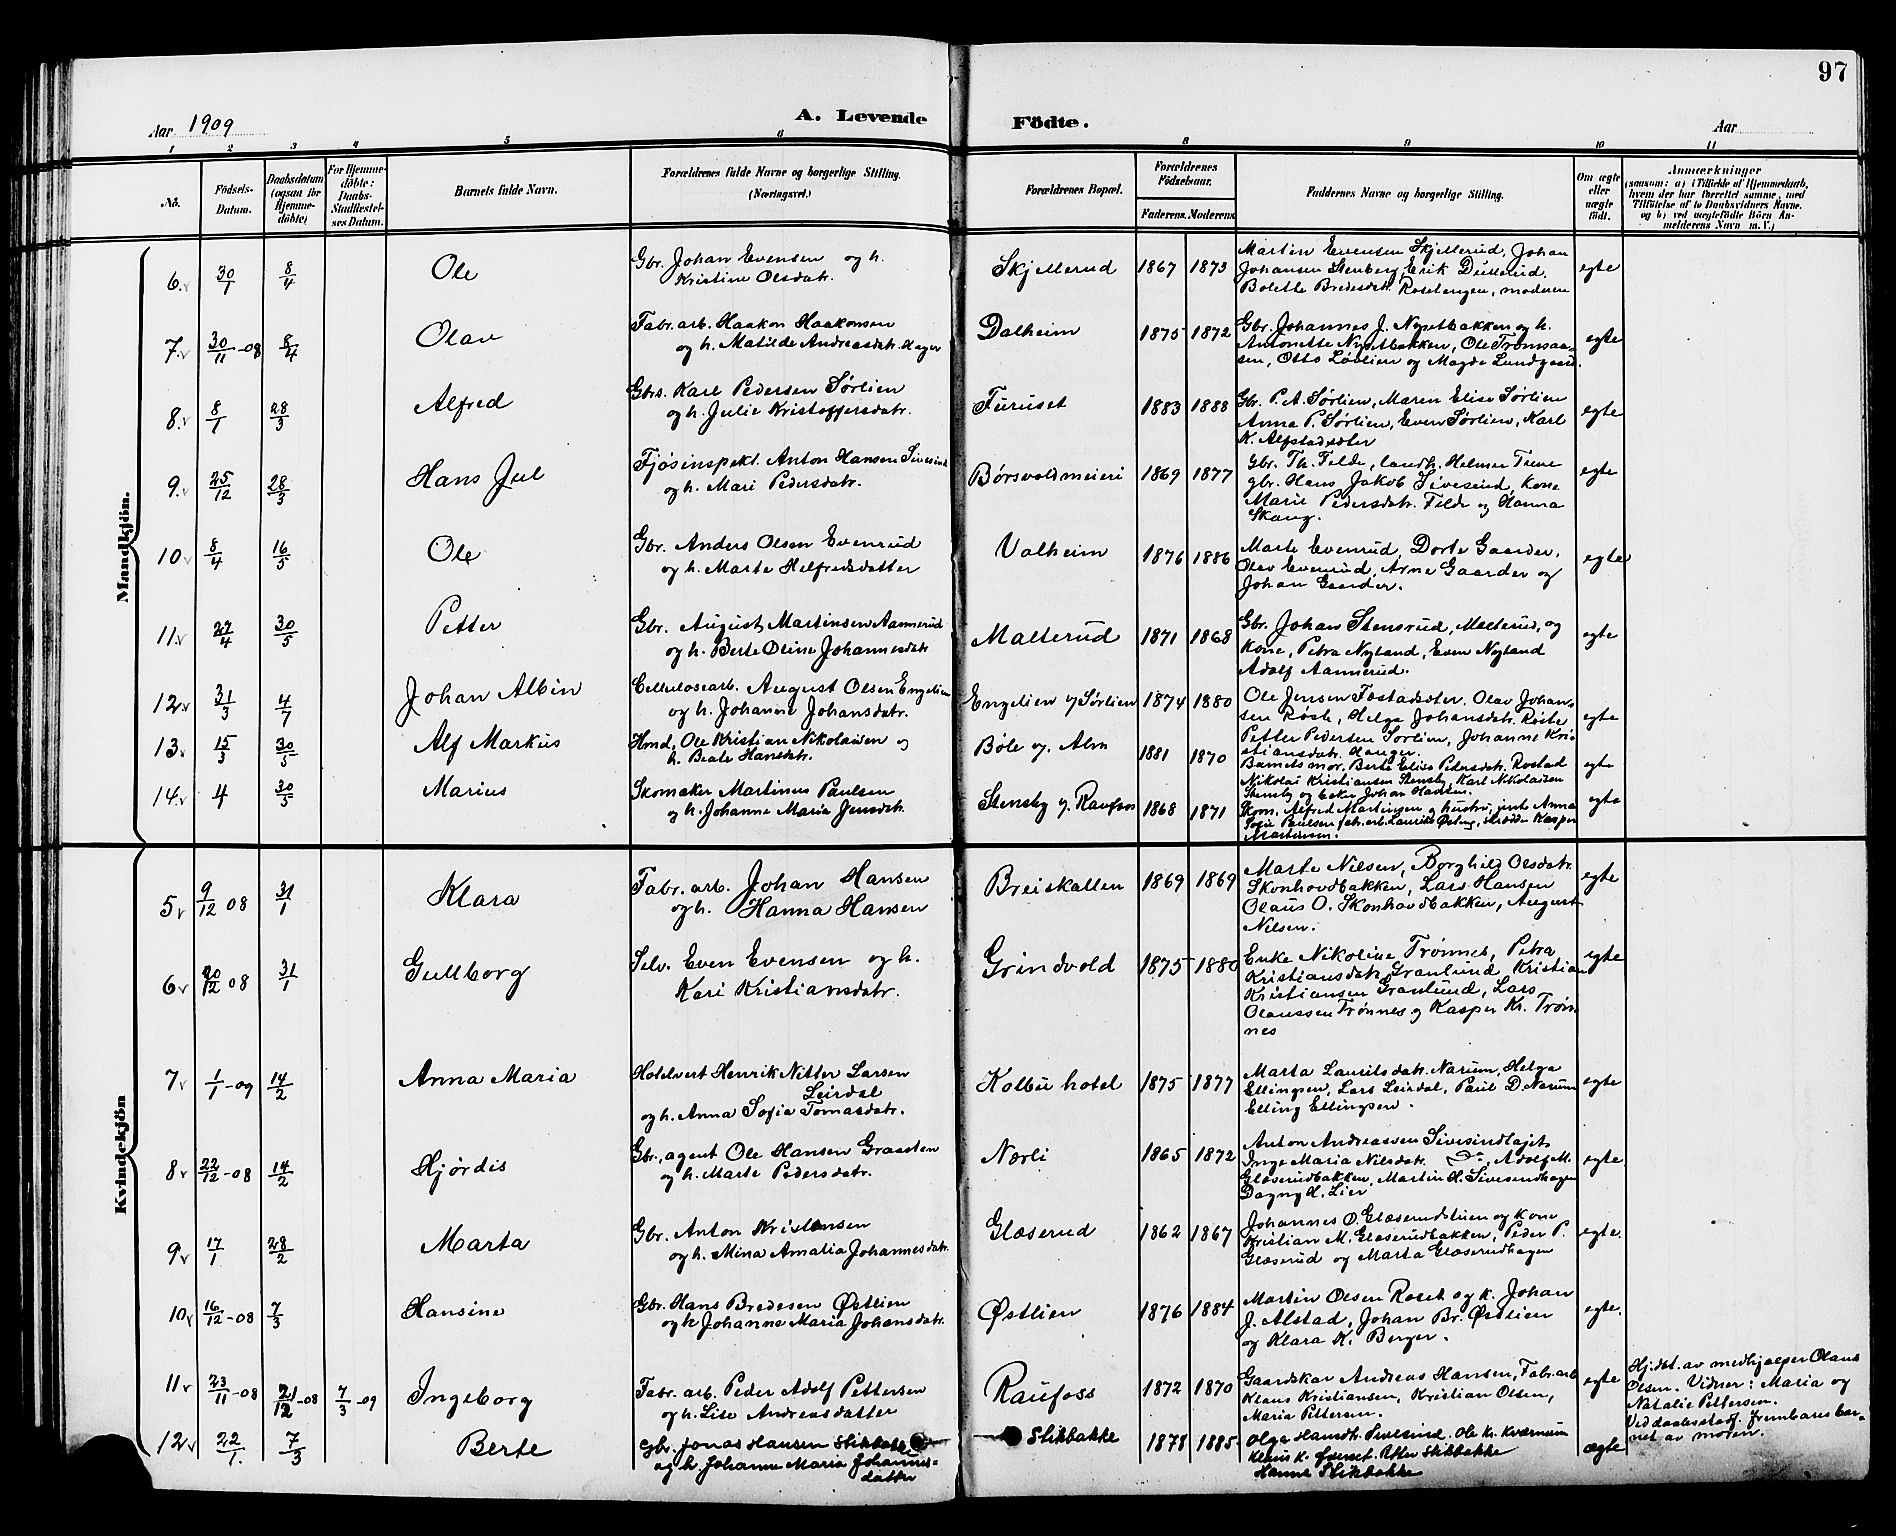 97
Aar 1909
A. Levende Födte.
Aar
1 2 3 4 5 6 8 9 10 11
No.
Födsels-Datum.
Daabsdatum (ogsaa for Hjemme-döbte)
For Hjemme-döbte: Daabs-Stadfæstel-ses Datum.
Barnets fulde Navn.
Forældrenes fulde Navne og borgerlige Stilling. (Næringsvei.)
Forældrenes Bopæl.
Forældrenes Födselsaar.
Faderens. Moderens.
Faddernes Navne og borgerlige Stilling.
Om ægte eller uægte födt.
Anmærkninger
(saasom: a) i Tilfælde af Hjemmedaab,
hvem der har forrettet samme, med
Tilföielse af to Daabsvidners Navne.
og b) ved uægtefödte Börn An-
melderens Navn m. V.)
Mandkjön.
6. 30/1 8/4 Ole
Gbr. Johan Evensen og h.
Kristine Olsdatr.
Skjellerud 1867 1873
Martin Evensen Skjellerud, Johan
Johansen Stenberg, Erik Dullerud.
Bolette Bredesdatr. Rosetengen, moderen
egte
7. 30/11-08 8/4 Olav
Fabr. arb. Haakon Haakonsen
og h. Matilde Andreasdatr. Hager
Dalheim 1875 1872
Gbr. Johannes J. Nysetbakken og h.
Antonette Nysetbakken, Ole Tromsaa-
sen, Otto Løvlien og Magda Lundgaard.
egte
8. 8/1 28/3 Alfred
Gbrs. Karl Pedersen Sørlien
og h. Julie Kristoffersdatr.
Furuset 1883 1888
Gbr. P. A. Sørlien, Maren Elise Sørlien
Anna P. Sørlien, Even Sørlien, Karl
K. Alfstadeter
egte
9. 25/12 28/3 Hans Jul
Fjøsinspekt. Anton Hansen Sivesind
og h. Mari Pedersdatr.
Børsvoldmeieri 1869 1877
Gbr. Th. Filde, landh. Helmer Tune
gbr. Hans Jakob Sivesind, Kone
Marie Pedersdatr. Filde og Hanna
Skaug.
egte
10 8/4 16/5 Ole
Gbr. Anders Olsen Evenrud
og h. Marte Helfredsdatter
Valheim 1876 1886
Marte Evenrud, Dorte Gaarder,
Olav Evenrud, Arne Gaarder og
Johan Gaarder.
egte
11. 27/4 30/5 Petter
Gbr. August Martinsen Aannerud
og h. Berte Oline Johannesdatr
Malterud 1871 1868
Gbr. Johan Stensrud, Malterud, og
Kone, Petra Nyland, Even Nyland
Adolf Aannerud.
egte
12 31/3 4/7 Johan Albin
Cellulosearb. August Olsen Engelien
og h. Johanne Johansdatr.
Engelien y Sørlien 1874 1880
Ole Jensen Fostadeter. Olav Johan-
sen Røste, Helga Johansdatr. Røste
Petter Pedersen Sørlien, Johanne Kri-
stiansdatr. Hanger.
egte
13. 15/3 30/5 Alf Markus
Hmd. Ole Kristian Nikolaisen og
h. Beate Hansdatr.
Bøle og. Alm 1881 1870
Barnets mor, Berte Elise Pedersdatr. Rostad
Nikolai Kristiansen Stensby, Karl Nikolaisen
Stensby og Johan Hansen.
egte
14. 4 30/5 Marius
Skomaker Martinus Paulsen
og h. Johanne Maria Jensdatr.
Stensby y. Raufoss 1868 1871
Skom. Alfred Martinsen og hustru, Anna
Sofie Paulsen, fabr. arb. Laurits Østeng, Kasper
Martinsen.
egte
Kvindekjön
5 9/12 08 31/1 Klara
Fabr. arb. Johan Hansen
og h. Hanna Hansen
Breiskallen 1869 1869
Marte Nilsen, Borghild Olsdatr.
Skonhovdbakken, Lars Hansen
Olaus O. Skonhovdbakken, August
Nilsen.
egte
6 20/12 08 31/1 Gullborg
Selv. Even Evensen og h.
Kari Kristiansdatr.
Grindvold 1875 1880
Enke Nikoline Trønnes, Petra
Kristiansdatr. Granlund, Kristian
Kristiansen Granlund, Lars
Olaussen Trønnes og Kasper Kr. Trøn-
nes
egte
7 1/1-09 14/2 Anna Maria
Hotelvert Henrik Nitter Larsen
Leirdal
og h. Anna Sofia Tomasdatr.
Kolbu hotel 1875 1877
Marta Lauritsdatr. Narum, Helga
Ellingsen, Lars Leirdal, Paul D. Narum
Elling Ellingsen.
egte
8 22/12-08 14/2 Hjørdis
Gbr., agent Ole Hansen Graasten
og h. Marte Pedersdatr.
Nærli 1865 1872
Anton Andreassen Sivesindtajet
Inge Maria Nilsdatr. Do, Adolf M.
Glæserudbakken, Martin H. Sivesindhagen
Dagny H. Lier
egte.
9 17/1 28/2 Marta
Gbr. Anton Kristensen
og h. Mina Amalia Johannesdatr.
Glæserud 1862 1867
Johannes O. Glæserudstuen og kone
Kristian M. Glæserudbakken, Peder P.
Glæserud og Marta Glæserudhagen
egte.
10 16/12-08 7/3 Hansine
Gbr. Hans Bredesen Østlien
og h Johanne Maria Johansdatr.
Østlien 1876 1884
Martin Olsen Roset og k. Johan
J. Alstad, Johan Br. Østlien
og Klara K. Berger.
egte.
11 23/11-08 21/12-08 7/3-09 Ingeborg
Fabr. arb. Peder Adolf Pettersen
og h. Lise Andreasdatter
Raufoss 1872 1870
Gaardskar Andreas Hansen, Fabr. arb
Klaus Kristiansen, Kristian Olsen,
Maria Pettersen.
egte
Hj. dbt. av medhjælper Olaus
Olsen. Vidner: Maria og
Natalie Pettersen.
Ved daabsstadf. frembares bar-
net av moren.
12 22/1. 7/3 Berte
Gbr. Jonas Hansen Stikbakke
og h. Johanne Maria Johannes-
datter
Stikbakke 1878 1885
Olga Hansdtr. Sivesind. Ole Kr. Kværnum
Klaus K. Øverset. Petter Stikbakke
Hanna Stikbakke
ægte